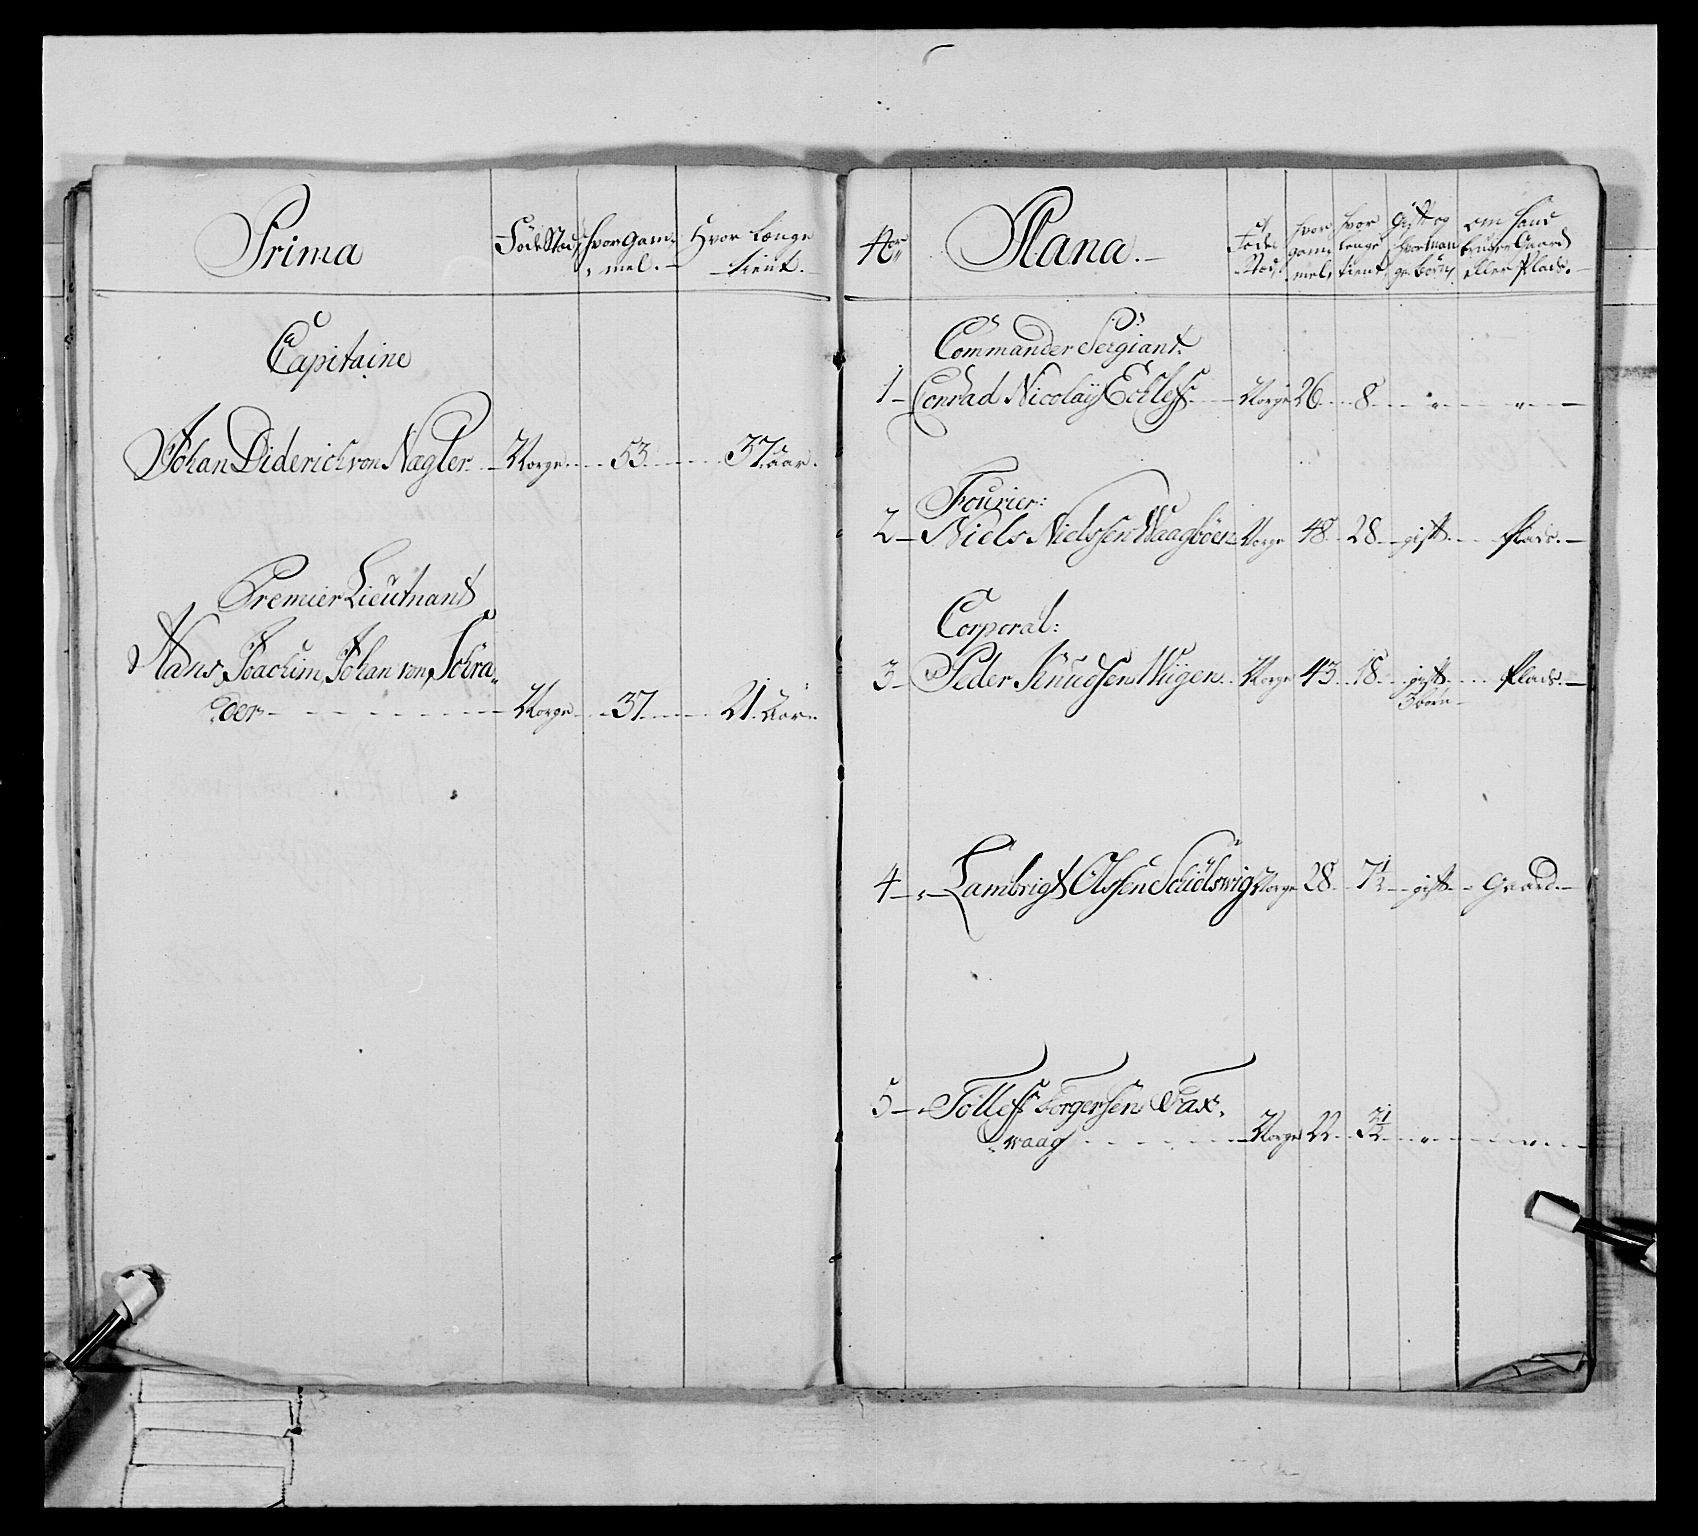 Prima
Føde Stad
hvor gam-
mel.
Hvor længe
tient.
Capitaine
Johan Diderich von Nagler Norge 53 37 aar.
Premier Lieutnant
Hans Joachim Johan von Schrä-
der Norge 37 21 aar
No
Plana.
Føde
Stad
hvor
gam-
mel
hvor
lenge
tient
Gift og
hvor man-
ge børn
om hand
bruger Gaard
eller Plads.
Commander Sergiant:
1 Conrad Nicolaÿ Norge 26 8 " "
Fourier:
2 Niels Nielssen Waagbøen Norge 48 28 gift Plads.
Corporal:
3 Peder Knudsen Wiigen Norge 43 18 gift Plads.
3 børn
4 Lambrigt Olssen Norge 28 7½ gift Gaard.
5 Tolleff Torgersen Fax-
vaag Norge 22 3½ " "